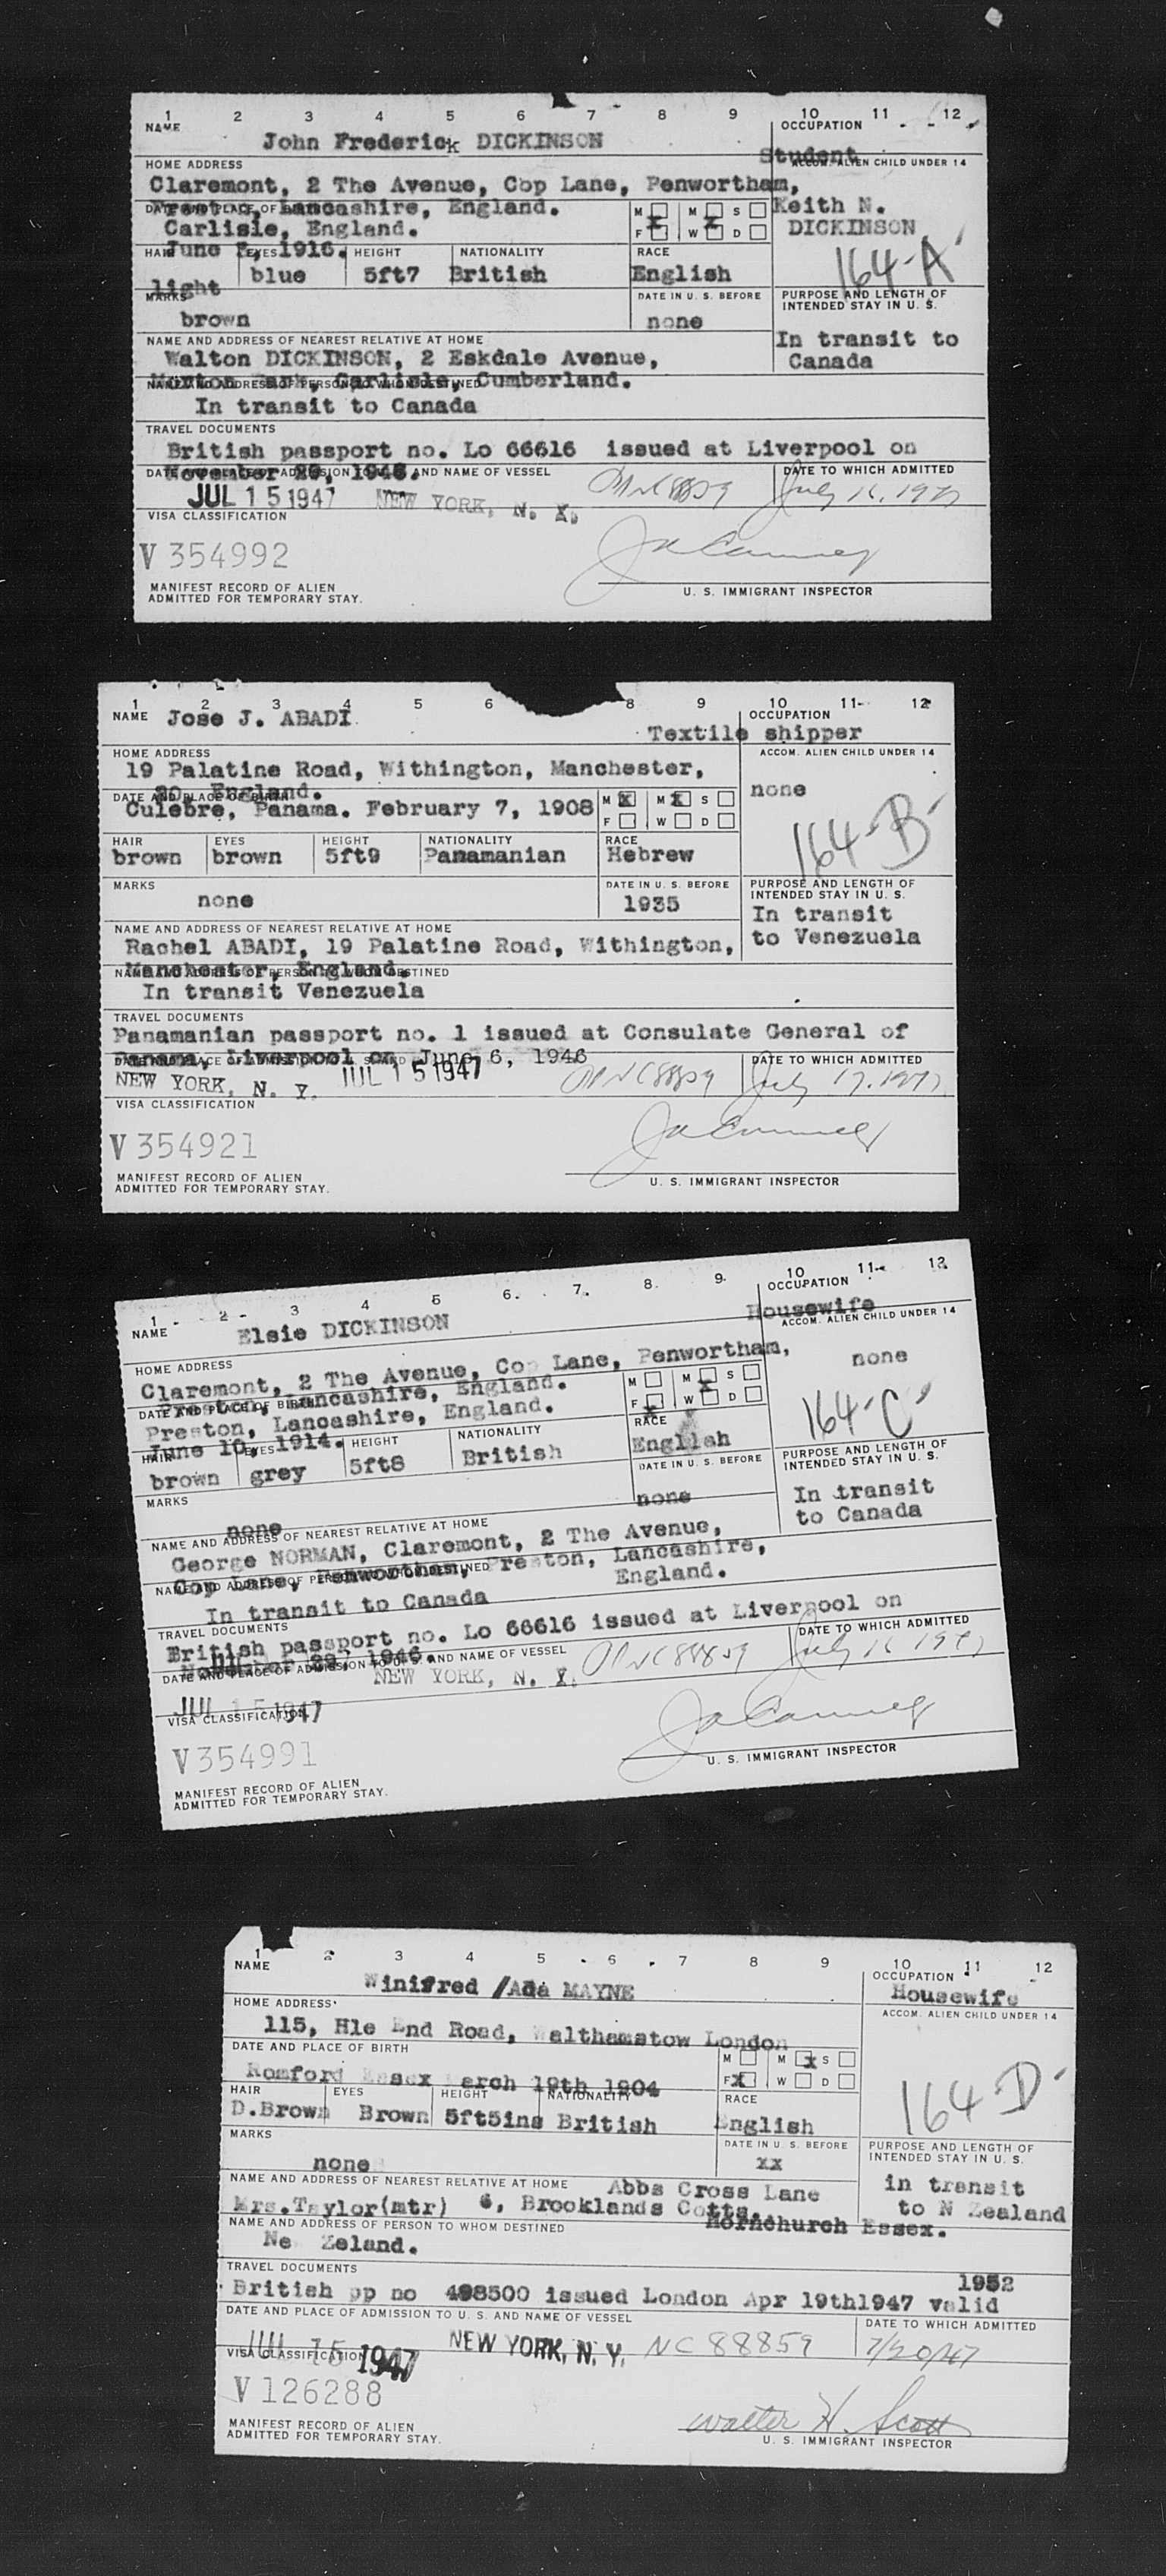 1 2 3 4 5 6 7 8 9 10 11 12
NAME OCCUPATION
John Frederick DICKINSON Student
HOME ADDRESS ACCOM. ALIEN CHILD UNDER 14
Claremont, 2 The Avenue, Cop Lane, Penwortham,
Preston, Lancashire, England. Keith N.
DATE AND PLACE OF BIRTH M M S
Carlisle, England. F W D DICKINSON
June 1916.
HAIR EYES HEIGHT NATIONALITY RACE 164-A
light blue 5ft7 British English
MARKS DATE IN U. S. BEFORE PURPOSE AND LENGTH OF
INTENDED STAY IN U. S.
brown none
NAME AND ADDRESS OF NEAREST RELATIVE AT HOME In transit to
Walton DICKINSON, 2 Eskdale Avenue, Canada
Carlisle, Cumberland.
NAME AND ADDRESS OF PERSON TO WHOM DESTINED
In transit to Canada
TRAVEL DOCUMENTS
British passport no. Lo 66616 issued at Liverpool on
November 29, 1946.
DATE AND PLACE OF ADMISSION TO U. S. AND NAME OF VESSEL DATE TO WHICH ADMITTED
JUL 15 1947 NEW YORK, N. Y. NC88859 July 16, 1947
VISA CLASSIFICATION
V 354992
MANIFEST RECORD OF ALIEN
ADMITTED FOR TEMPORARY STAY.
U. S. IMMIGRANT INSPECTOR
1 2 3 4 5 6 8 9 10 11 12
NAME Jose J. ABADI OCCUPATION
Textile shipper
HOME ADDRESS ACCOM. ALIEN CHILD UNDER 14
19 Palatine Road, Withington, Manchester,
20, England. none
DATE AND PLACE OF BIRTH M X M X S
Culebre, Panama. February 7, 1908 F W D
HAIR EYES HEIGHT NATIONALITY RACE 164-B
brown brown 5ft9 Panamanian Hebrew
MARKS DATE IN U. S. BEFORE PURPOSE AND LENGTH OF
INTENDED STAY IN U. S.
none 1935 In transit
NAME AND ADDRESS OF NEAREST RELATIVE AT HOME to Venezuela
Rachel ABADI, 19 Palatine Road, Withington,
Manchester, England.
NAME AND ADDRESS OF PERSON TO WHOM DESTINED
In transit Venezuela
TRAVEL DOCUMENTS
Panamanian passport no. 1 issued at Consulate General of
Panama, Liverpool on June 6, 1946
DATE TO WHICH ADMITTED
NEW YORK, N. Y. JUL 15 1947 NC88859 July 17, 1947
VISA CLASSIFICATION
V 354921
MANIFEST RECORD OF ALIEN
ADMITTED FOR TEMPORARY STAY.
U. S. IMMIGRANT INSPECTOR
1 2 3 4 5 6 7 8 9 10 11 12
NAME OCCUPATION
Elsie DICKINSON Housewife
HOME ADDRESS ACCOM. ALIEN CHILD UNDER 14
Claremont, 2 The Avenue, Cop Lane, Penwortham,
Preston, Lancashire, England. none
DATE AND PLACE OF BIRTH M M S
Preston, Lancashire, England. F W D
June 10, 1914.
HAIR EYES HEIGHT NATIONALITY RACE 164-C
brown grey 5ft8 British English
MARKS DATE IN U. S. BEFORE PURPOSE AND LENGTH OF
INTENDED STAY IN U. S.
none none In transit
to Canada
NAME AND ADDRESS OF NEAREST RELATIVE AT HOME
George NORMAN, Claremont, 2 The Avenue,
Cop Lane, Penwortham, Preston, Lancashire,
England.
NAME AND ADDRESS OF PERSON TO WHOM DESTINED
In transit to Canada
TRAVEL DOCUMENTS
British passport no. Lo 66616 issued at Liverpool on
November 29, 1946.
DATE AND PLACE OF ADMISSION TO U. S. AND NAME OF VESSEL DATE TO WHICH ADMITTED
JUL 15 1947 NEW YORK, N. Y. NC88859 July 16 1947
VISA CLASSIFICATION
V 354991
MANIFEST RECORD OF ALIEN
ADMITTED FOR TEMPORARY STAY.
U. S. IMMIGRANT INSPECTOR
1 2 3 4 5 6 7 8 9 10 11 12
NAME OCCUPATION
Winifred /Ada MAYNE Housewife
HOME ADDRESS ACCOM. ALIEN CHILD UNDER 14
115, Hle End Road, Walthamstow London
DATE AND PLACE OF BIRTH M M x S
Romford Essex March 19th 1904 F X W D
HAIR EYES HEIGHT NATIONALITY RACE 164-D
D.Brown Brown 5ft5ins British English
MARKS DATE IN U. S. BEFORE PURPOSE AND LENGTH OF
INTENDED STAY IN U. S.
none xx in transit
NAME AND ADDRESS OF NEAREST RELATIVE AT HOME Abbs Cross Lane to N Zealand
Mrs.Taylor(mtr) 6, Brooklands Cotts.
Hornchurch Essex.
NAME AND ADDRESS OF PERSON TO WHOM DESTINED
Ne Zeland.
TRAVEL DOCUMENTS 1952
British pp no 498500 issued London Apr 19th1947 valid
DATE AND PLACE OF ADMISSION TO U. S. AND NAME OF VESSEL DATE TO WHICH ADMITTED
JUL 15 1947 NEW YORK, N. Y. NC 88859 7/20/47
VISA CLASSIFICATION
V 126288
MANIFEST RECORD OF ALIEN
ADMITTED FOR TEMPORARY STAY.
Walter H. Scott
U. S. IMMIGRANT INSPECTOR